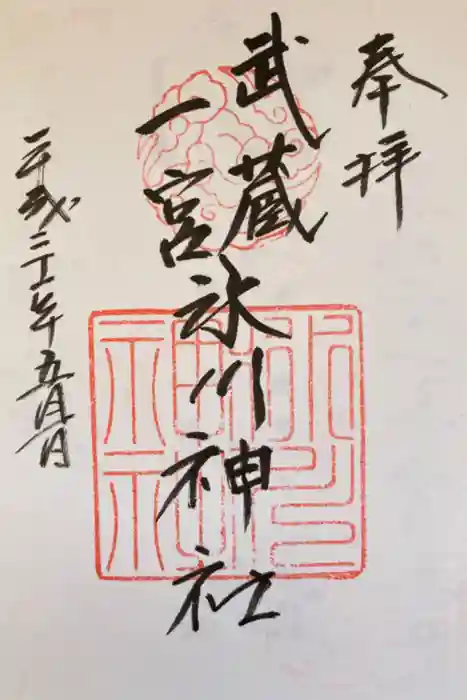 奉拝
武蔵
一宮
氷川神社
平成二十一年五月一日
氷川
神社